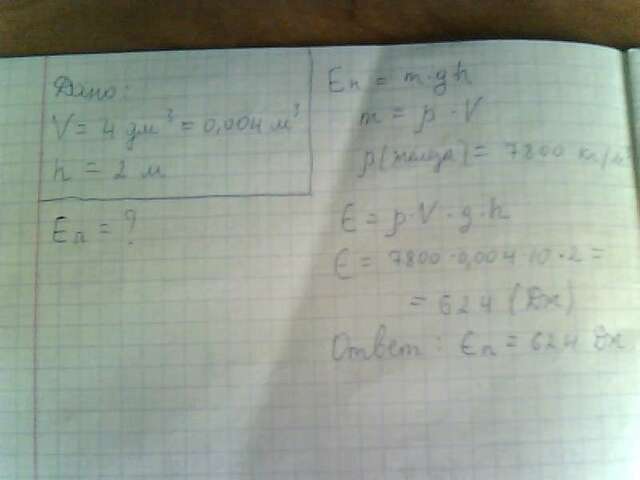 Дано:
V = 4 дм³ = 0,004 м³
h = 2 м
Eп = ?
Eп = m·gh
m = ρ·V
ρ(железа) = 7800 кг/м³
E = ρ·V·g·h
E = 7800·0,004·10·2 =
= 624 (Дж)
Ответ: Eп = 624 Дж